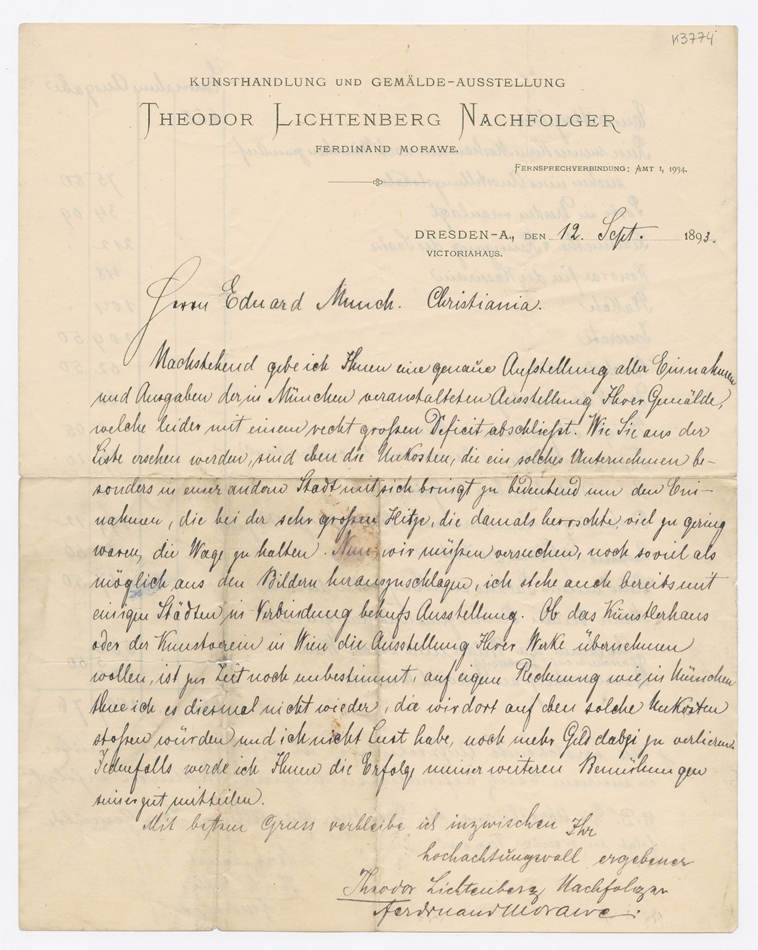 K3774
KUNSTHANDLUNG UND GEMÄLDE-AUSSTELLUNG
THEODOR LICHTENBERG NACHFOLGER
FERDINAND MORAWE.
FERNSPRECHVERBINDUNG: AMT 1, 1994.
DRESDEN-A., DEN 12. Sept. 1893.
VICTORIAHAUS.
Herrn Eduard Munch. Christiania.
Nachstehend gebe ich Ihnen eine genaue Aufstellung aller Einnahmen
und Ausgaben der in München veranstalteten Ausstellung Ihrer Gemälde,
welche leider mit einem recht großen Deficit abschließt. Wie Sie aus der
Liste ersehen werden, sind eben die Unkosten, die ein solches Unternehmen be-
sonders in einer andern Stadt mit sich bringt zu bedeutend um den Ein-
nahmen, die bei der sehr großen Hitze, die damals herrschte viel zu gering
waren, die Wage zu halten. Nun wir müßen versuchen, noch soviel als
möglich aus den Bildern herauszuschlagen, ich stehe auch bereits mit
einigen Städten in Verbindung behufs Ausstellung. Ob das Künstlerhaus
oder der Kunstverein in Wien die Ausstellung Ihrer Werke übernehmen
wollen, ist zur Zeit noch unbestimmt, auf eigene Rechnung wie in München
thue ich es diesmal nicht wieder, da wir dort auf eben solche Unkosten
stoßen würden und ich nicht Lust habe, noch mehr Geld dabei zu verlieren.
Jedenfalls werde ich Ihnen die Erfolge meiner weiteren Bemühungen
seiner Zeit mitteilen.
Mit bestem Gruss verbleibe ich inzwischen Ihr
hochachtungsvoll ergebener
Theodor Lichtenberg Nachfolger
Ferdinand Morawe.